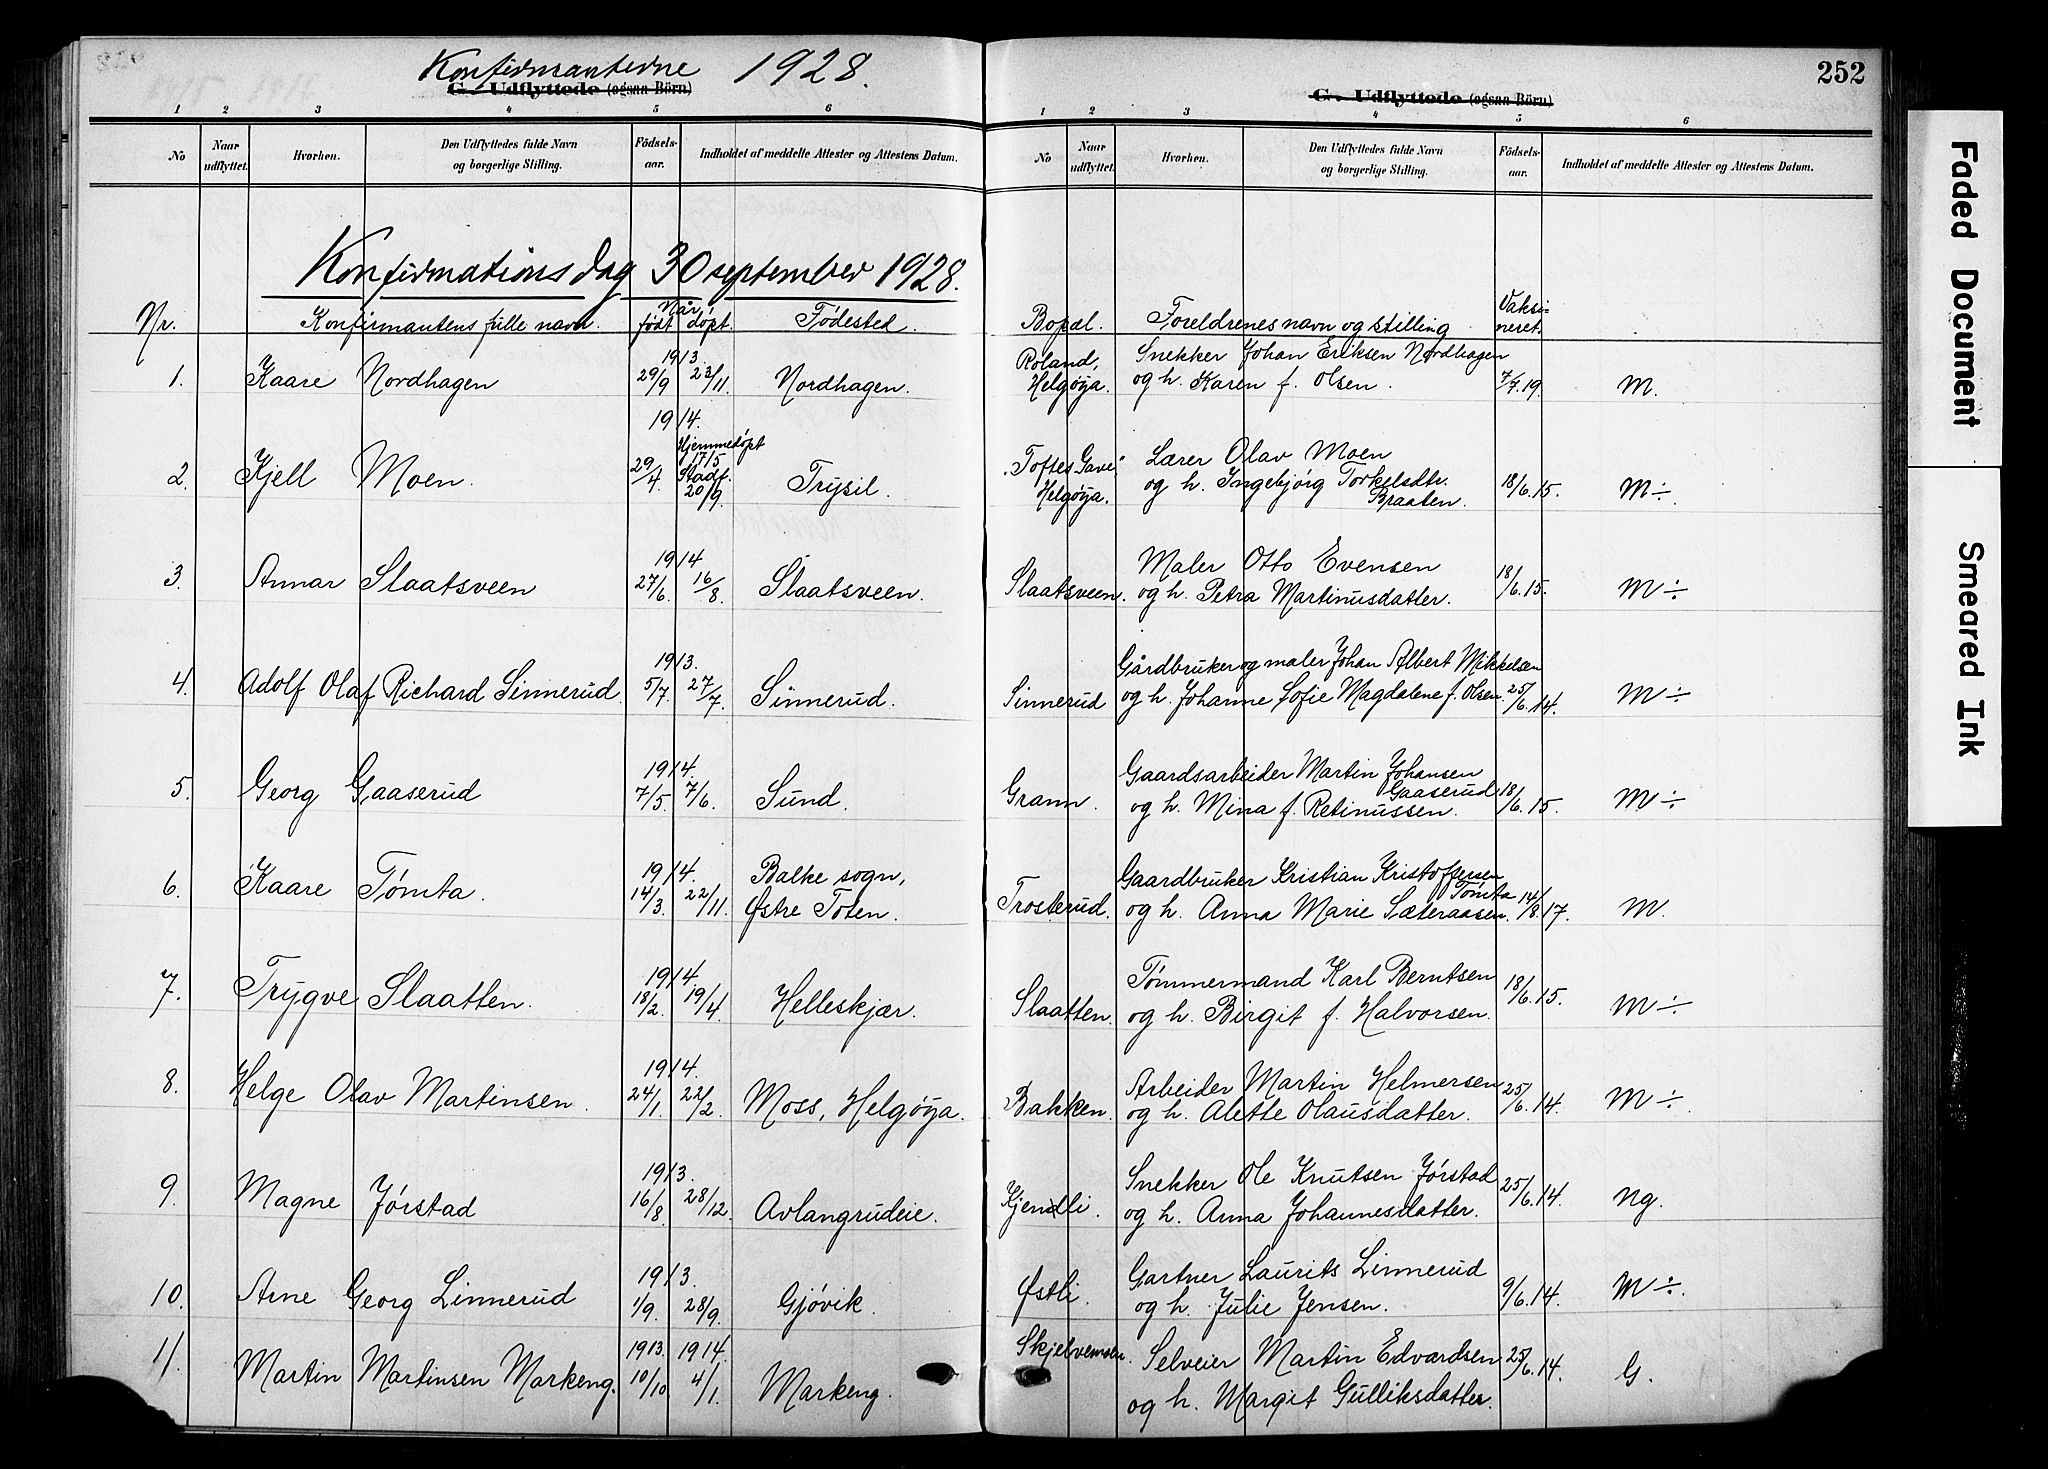 Konfirmanterne 1928.
G. Udflyttede (ogsaa Börn)
1 2 3 4 5 6
No Naar udflyttet. Hvorhen. Den Udflyttedes fulde Navn og borgerlige Stilling. Födsels-aar. Indholdet af meddelte Attester og Attestens Datum.
252
G. Udflyttede (ogsaa Börn)
1 2 3 4 5 6
No Naar udflyttet. Hvorhen. Den Udflyttedes fulde Navn og borgerlige Stilling. Födsels-aar. Indholdet af meddelte Attester og Attestens Datum.
Konfirmationsdag 30 september 1928.
Nr. Konfirmantens fulle navn. Når født døpt. Fødested. Bopæl. Foreldrenes navn og stilling Vaksi-neret.
1. Kaare Nordhagen 1913. 29/9 23/11. Nordhagen. Roland, Helgøya. Snekker Johan Eriksen Nordhagen
og h. Karen f. Olsen. 7/7.19. M.
2. Kjell Moen. 1914. 29/4. Hjemmedøpt 17/5 Stadf. 20/9. Trysil. "Toftes Gave" Helgøya. Lærer Olav Moen
og h. Ingebjørg Torkelsdtr. Braaten. 18/6.15. M÷.
3. Annar Slaatsveen 1914 27/6. 16/8. Slaatsveen. Slaatsveen. Maler Otto Evensen
og h. Petra Martinusdatter. 18/6.15. M÷.
4. Adolf Olaf Richard Sinnerud. 1913. 5/7. 27/7. Sinnerud. Sinnerud Gårdbruker og maler Johan Albert Mikkelsen
og h. Johanne Sofie Magdalene f. Olsen. 25/6.14. M÷
5. Georg Gaaserud 1914. 7/5. 7/6. Sund. Grann. Gaardsarbeider Martin Johansen Gaaserud
og h. Mina f. Retinussen. 18/6.15. M÷
6. Kaare Tømta. 1914. 14/3. 22/11. Balke sogn, Østre Toten. Trosterud. Gaardbruker Kristian Kristoffersen Tømta
og h. Anna Marie Sæteraasen. 14/8.17. M.
7. Trygve Slaatten. 1914 18/2. 19/4. Helleskjær. Slaatten. Tømmermand Karl Berntsen
og h. Birgit f. Halvorsen. 18/6.15. M÷
8. Helge Olav Martinsen. 1914. 24/1. 22/2. Moss, Helgøya. Bakken. Arbeider Martin Helmersen
og h. Alette Olausdatter. 25/6.14. M÷.
9. Magne Jørstad 1913. 16/8. 28/12. Avlangrudeie. Kjendli. Snekker Ole Knutsen Jørstad
og h. Anna Johannesdatter. 25/6.14. Ng.
10. Arne Georg Linnerud 1913. 1/9. 28/9. Gjøvik. Østli. Gartner Laurits Linnerud
og h. Julie Jensen. 9/6.14. M÷.
11. Martin Martinsen Markeng. 1913. 10/10 1914. 4/1. Markeng. Selveier Martin Edvardsen
og h. Margit Gulliksdatter. 25/6.14. G.
Faded Document
Smeared Ink